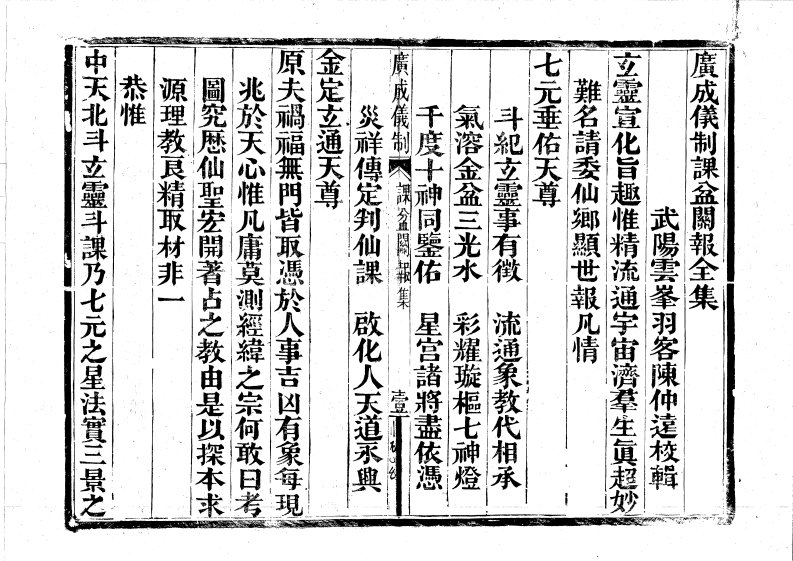 廣成儀制課盆關報全集
武陽雲峯羽客陳仲遠校輯
立靈宣化旨趣惟精流通宇宙濟羣生眞超妙
難名請委仙鄉顯世報凡情
七元垂佑天尊
斗紀立靈事有徵 流通象教代相承
氣溶金盆三光水 彩耀璇樞七神燈
千度十神同鑒佑 星宮諸將盡依憑
災祥傳定判仙課 啟化人天道永興
廣成儀制 課盆關報集 壹
金定立通天尊
原夫禍福無門皆取憑於人事吉凶有象每現
兆於天心惟凡庸莫測經緯之宗何敢曰考
圖究歷仙聖宏開著占之教由是以探本求
源理教良精取材非一
恭惟
中天北斗立靈斗課乃七元之星法實三景之